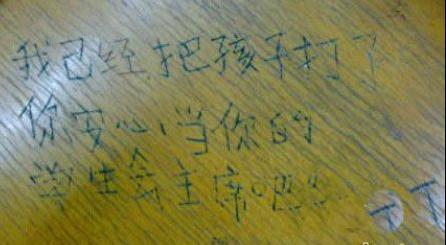 我已经把孩子打了
你安心当你的
学生会主席吧